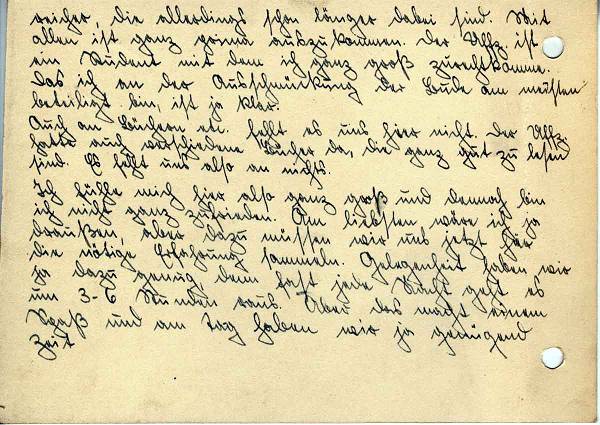 reicher, die allerdings schon länger dabei sind. Mit
allen ist ganz prima auszukommen. Der Uffz. ist
ein Student mit dem ich ganz groß zurechtkomme.
Das ich an der Ausschmückung der Bude am meisten
beteiligt bin, ist ja klar.
Auch an Büchern etc. fehlt es uns hier nicht. Der Uffz.
hatte auch verschiedene Bücher da, die ganz gut zu lesen
sind. Es fehlt uns also an nichts.
Ich fühle mich hier also ganz groß und dennoch bin
ich nicht ganz zufrieden. Am liebsten wäre ich ja
draußen, aber dazu müssen wir uns jetzt hier
die nötige Erfahrung sammeln. Gelegenheit haben wir
ja dazu genug, denn fast jede Nacht geht es
um 3-6 Stunden raus. Aber das macht einem
Spaß und am Tag haben wir ja genügend
Zeit